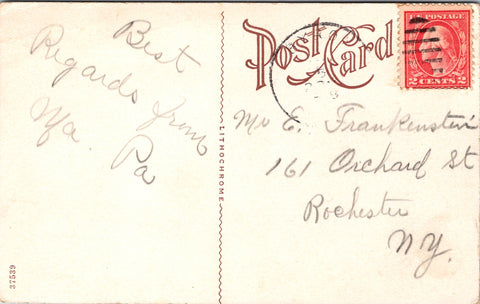 Best
Regards from
Ma.
Pa
LITHOCHROME
37539
Post Card
U.S. POSTAGE
2 CENTS 2
Mr E. Frankenstein
161 Orchard St
Rochester
N.Y.